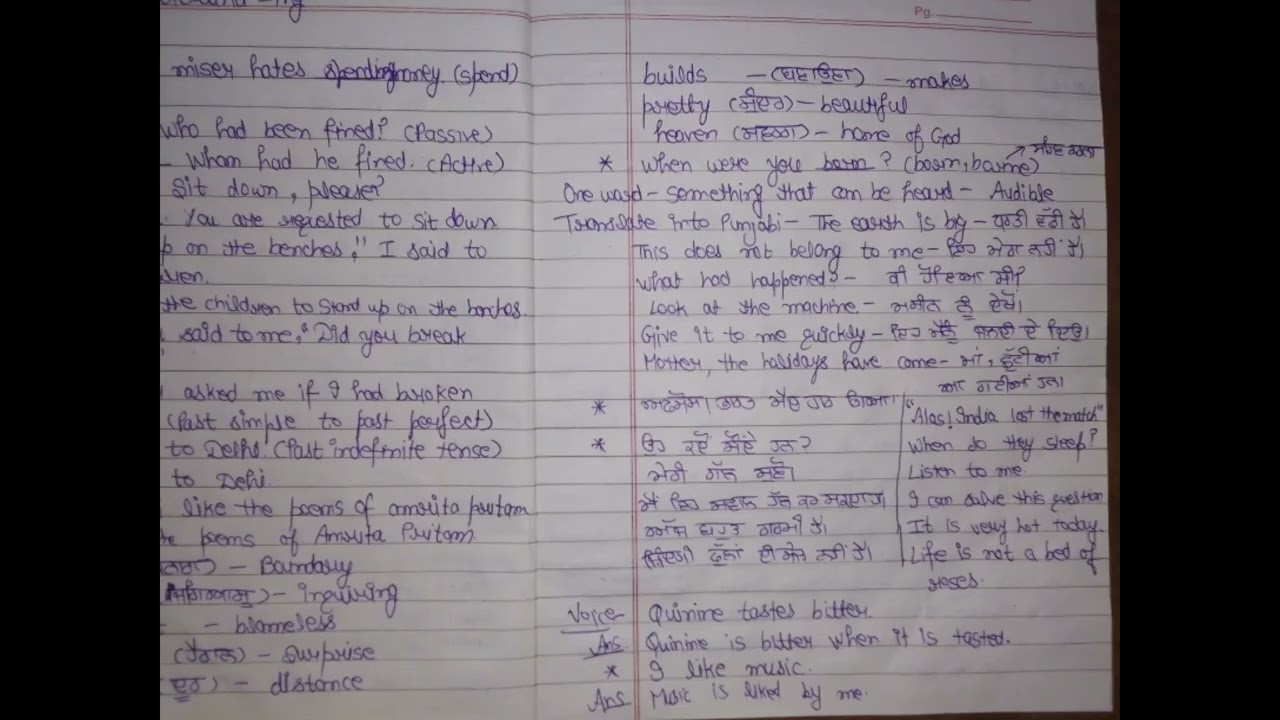 miser hates spending money (spend)
who had been fined? (Passive)
- Whom had he fined. (Active)
Sit down, please?
You are requested to sit down
on the benches," I said to
the children to stand up on the benches.
said to me, "Did you break
asked me if I had broken
(Past simple to past perfect)
to Delhi. (Past indefinite tense)
to Delhi.
like the poems of amrita pritam
poems of Amrita Pritam.
- Boundary
- inquiring
- blameless
(ਹੈਰਾਨ) - surprise
(ਦੂਰ) - distance
Pg.
builds - (ਬਣਾਉਣਾ) - makes
pretty (ਸੁੰਦਰ) - beautiful
heaven - home of God
* When were you born? (born, borne)
One word - something that can be heard - Audible
Translate into Punjabi - The earth is big - ਧਰਤੀ ਵੱਡੀ ਹੈ।
This does not belong to me - ਇਹ ਮੇਰਾ ਨਹੀਂ ਹੈ।
What had happened? - ਕੀ ਹੋਇਆ ਸੀ?
Look at the machine. - ਮਸ਼ੀਨ ਨੂੰ ਦੇਖੋ।
Give it to me quickly - ਇਹ ਮੈਨੂੰ ਜਲਦੀ ਦੇ ਦਿਉ।
Mother, the holidays have come - ਮਾਂ, ਛੁੱਟੀਆਂ
ਆ ਗਈਆਂ ਹਨ।
* ਅਫਸੋਸ। ਭਾਰਤ ਮੈਚ ਹਾਰ ਗਿਆ। "Alas! India lost the match"
* ਉਹ ਕਦੋਂ ਸੌਂਦੇ ਹਨ? When do they sleep?
ਮੇਰੀ ਗੱਲ ਸੁਣੋ। Listen to me.
ਮੈਂ ਇਹ ਸਵਾਲ ਹੱਲ ਕਰ ਸਕਦਾ ਹਾਂ I can solve this question
ਅੱਜ ਬਹੁਤ ਗਰਮੀ ਹੈ। It is very hot today.
ਜ਼ਿੰਦਗੀ ਫੁੱਲਾਂ ਦੀ ਸੇਜ ਨਹੀਂ ਹੈ। Life is not a bed of
roses.
Voice Quinine tastes bitter.
Ans Quinine is bitter when it is tasted.
* I like music.
Ans Music is liked by me.